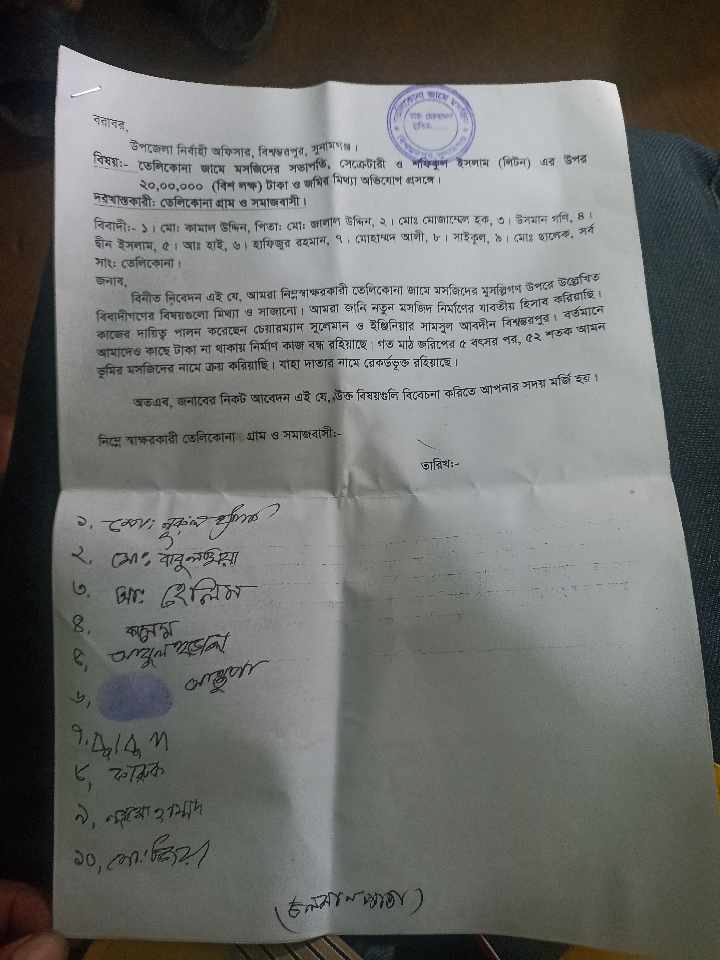 বরাবর,
উপজেলা নির্বাহী অফিসার, বিশ্বম্ভরপুর, সুনামগঞ্জ।
বিষয়:- তেলিকোনা জামে মসজিদের সভাপতি, সেক্রেটারী ও শফিকুল ইসলাম (লিটন) এর উপর
২০,০০,০০০ (বিশ লক্ষ) টাকা ও জমির মিথ্যা অভিযোগ প্রসঙ্গে।
দরখাস্তকারী: তেলিকোনা গ্রাম ও সমাজবাসী।
বিবাদী:- ১। মো: কামাল উদ্দিন, পিতা: মো: জালাল উদ্দিন, ২। মোঃ মোজাম্মেল হক, ৩। উসমান গণি, ৪।
দ্বীন ইসলাম, ৫। আঃ হাই, ৬। হাফিজুর রহমান, ৭। মোহাম্মদ আলী, ৮। সাইকুল, ৯। মোঃ ছালেক, সর্ব
সাং: তেলিকোনা।
জনাব,
বিনীত নিবেদন এই যে, আমরা নিম্নস্বাক্ষরকারী তেলিকোনা জামে মসজিদের মুসল্লিগণ উপরে উল্লেখিত
বিবাদীগণের বিষয়গুলো মিথ্যা ও সাজানো। আমরা জানি নতুন মসজিদ নির্মাণের যাবতীয় হিসাব করিয়াছি।
কাজের দায়িত্ব পালন করেছেন চেয়ারম্যান সুলেমান ও ইঞ্জিনিয়ার সামসুল আবদীন বিশ্বম্ভরপুর। বর্তমানে
আমাদেও কাছে টাকা না থাকায় নির্মাণ কাজ বন্ধ রহিয়াছে। গত মাঠ জরিপের ৫ বৎসর পর, ৫২ শতক আমন
ভূমির মসজিদের নামে ক্রয় করিয়াছি। যাহা দাতার নামে রেকর্ডভূক্ত রহিয়াছে।
অতএব, জনাবের নিকট আবেদন এই যে, উক্ত বিষয়গুলি বিবেচনা করিতে আপনার সদয় মর্জি হয়।
নিম্নে স্বাক্ষরকারী তেলিকোনা গ্রাম ও সমাজবাসী:-
তারিখ:-
১. মো: নুরুল
২. মো: বাবুল মিয়া
৩. আ: হেলিম
৪.
৫, আবুল
৬,
৭.
৮, ফারুক
৯,
১০, মো:
(চলমান পাতা)